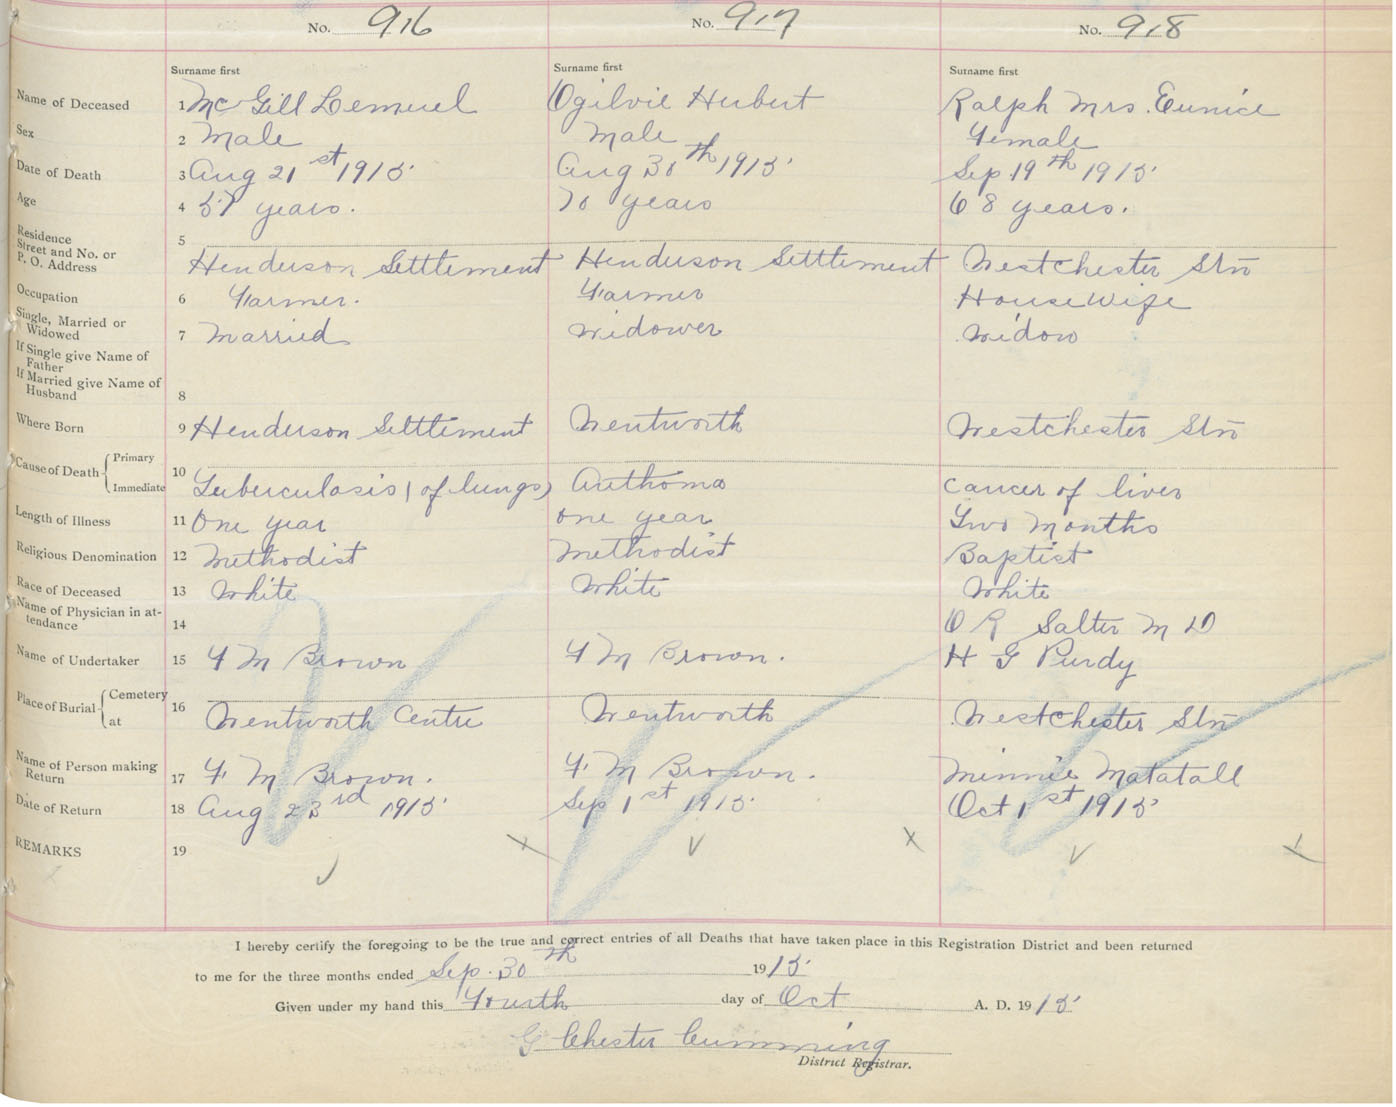 No. 916 No. 917 No. 918
Surname first Surname first Surname first
Name of Deceased 1 McGill Lemuel Ogilvie Herbert Ralph Mrs. Eunice
Sex 2 Male Male Female
Date of Death 3 Aug 21st 1915 Aug 30th 1915 Sep 19th 1915
Age 4 57 years. 70 years 68 years.
Residence
Street and No. or
P. O. Address 5 Henderson Settlement Henderson Settlement Westchester Stn
Occupation 6 Farmer. Farmer HouseWife
Single, Married or
Widowed 7 Married Widower Widow
If Single give Name of
Father
If Married give Name of
Husband 8
Where Born 9 Henderson Settlement Wentworth Westchester Stn
Cause of Death { Primary
Immediate 10 Tuberculosis (of lungs) Authoma cancer of liver
Length of Illness 11 One year One year Two Months
Religious Denomination 12 Methodist Methodist Baptist
Race of Deceased 13 White White White
Name of Physician in at-
tendance 14 O R Salter M D
Name of Undertaker 15 F M Brown F M Brown. H G Purdy
Place of Burial { Cemetery
at 16 Wentworth Centre Wentworth Westchester Stn
Name of Person making
Return 17 F. M Brown. F. M Brown. Minnie Matatall
Date of Return 18 Aug 23rd 1915 Sep 1st 1915 Oct 1st 1915
REMARKS 19
I hereby certify the foregoing to be the true and correct entries of all Deaths that have taken place in this Registration District and been returned
to me for the three months ended Sep. 30th 1915
Given under my hand this Fourth day of Oct A. D. 1915
G Chester Cumming
District Registrar.